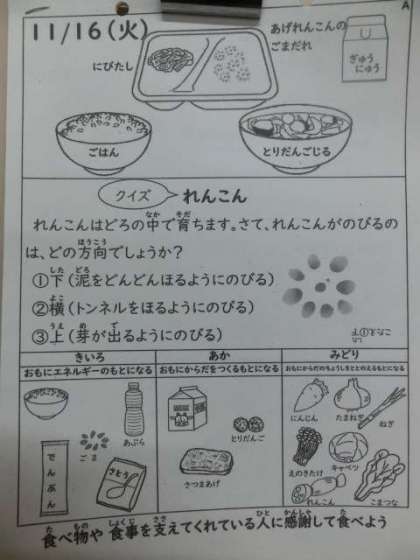 A
11/16(火)
にびたし
あげれんこんの
ごまだれ
ぎゅう
にゅう
ごはん
とりだんごじる
クイズ
れんこん
れんこんはどろの中で育ちます。さて、れんこんがのびるの
は、どの方向でしょうか?
①下(泥をどんどんほるようにのびる)
②横(トンネルをほるようにのびる)
③上(芽が出るようにのびる)
きいろ
あか
みどり
おもにエネルギーのもとになる
おもにからだをつくるもとになる
おもにからだのちょうしをととのえるもとになる
あぶら
ごま
でんぷん
さとう
とりだんご
さつまあげ
にんじん
たまねぎ
ねぎ
えのきたけ
キャベツ
れんこん
こまつな
食べ物や食事を支えてくれている人に感謝して食べよう